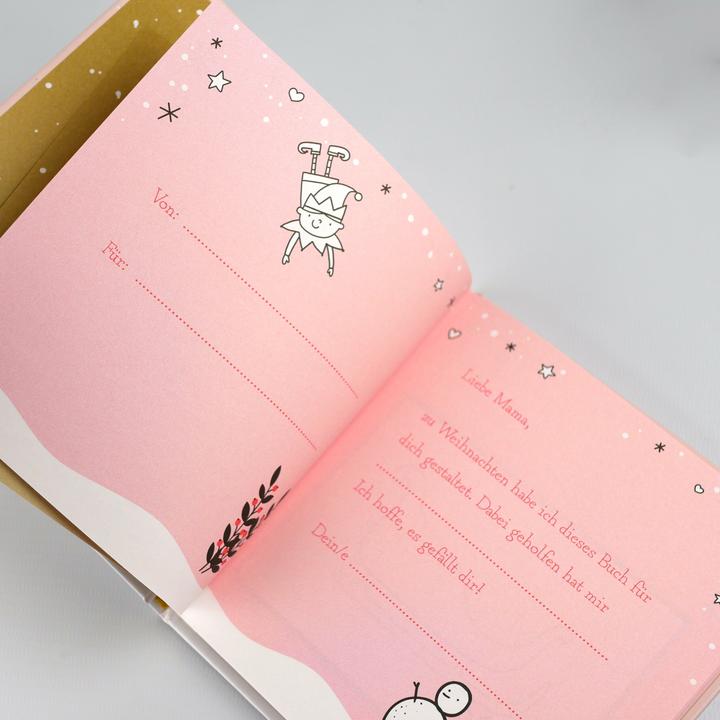 Von:
Für:
Liebe Mama,
zu Weihnachten habe ich dieses Buch für
dich gestaltet. Dabei geholfen hat mir
Ich hoffe, es gefällt dir!
Dein/e